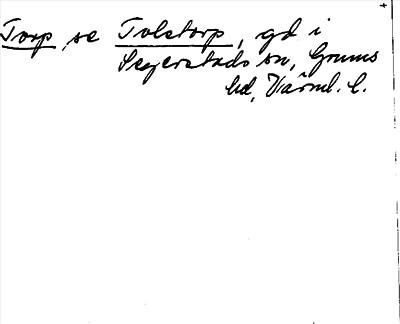 Torp, se Tolstorp, gd i
Segerstads sn, Grums
hd, Värml. l.